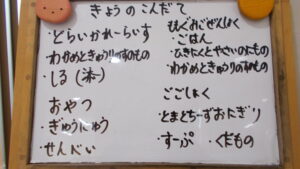 きょうのこんだて
・どらいかれーらいす
・わかめときゅうりのすのもの
・しる
おやつ
・ぎゅうにゅう
・せんべい
・ごはん
・ひきにくとやさいのにもの
・わかめときゅうりのすのもの
ごごしょく
・とまとちーずおにぎり
・すーぷ ・くだもの